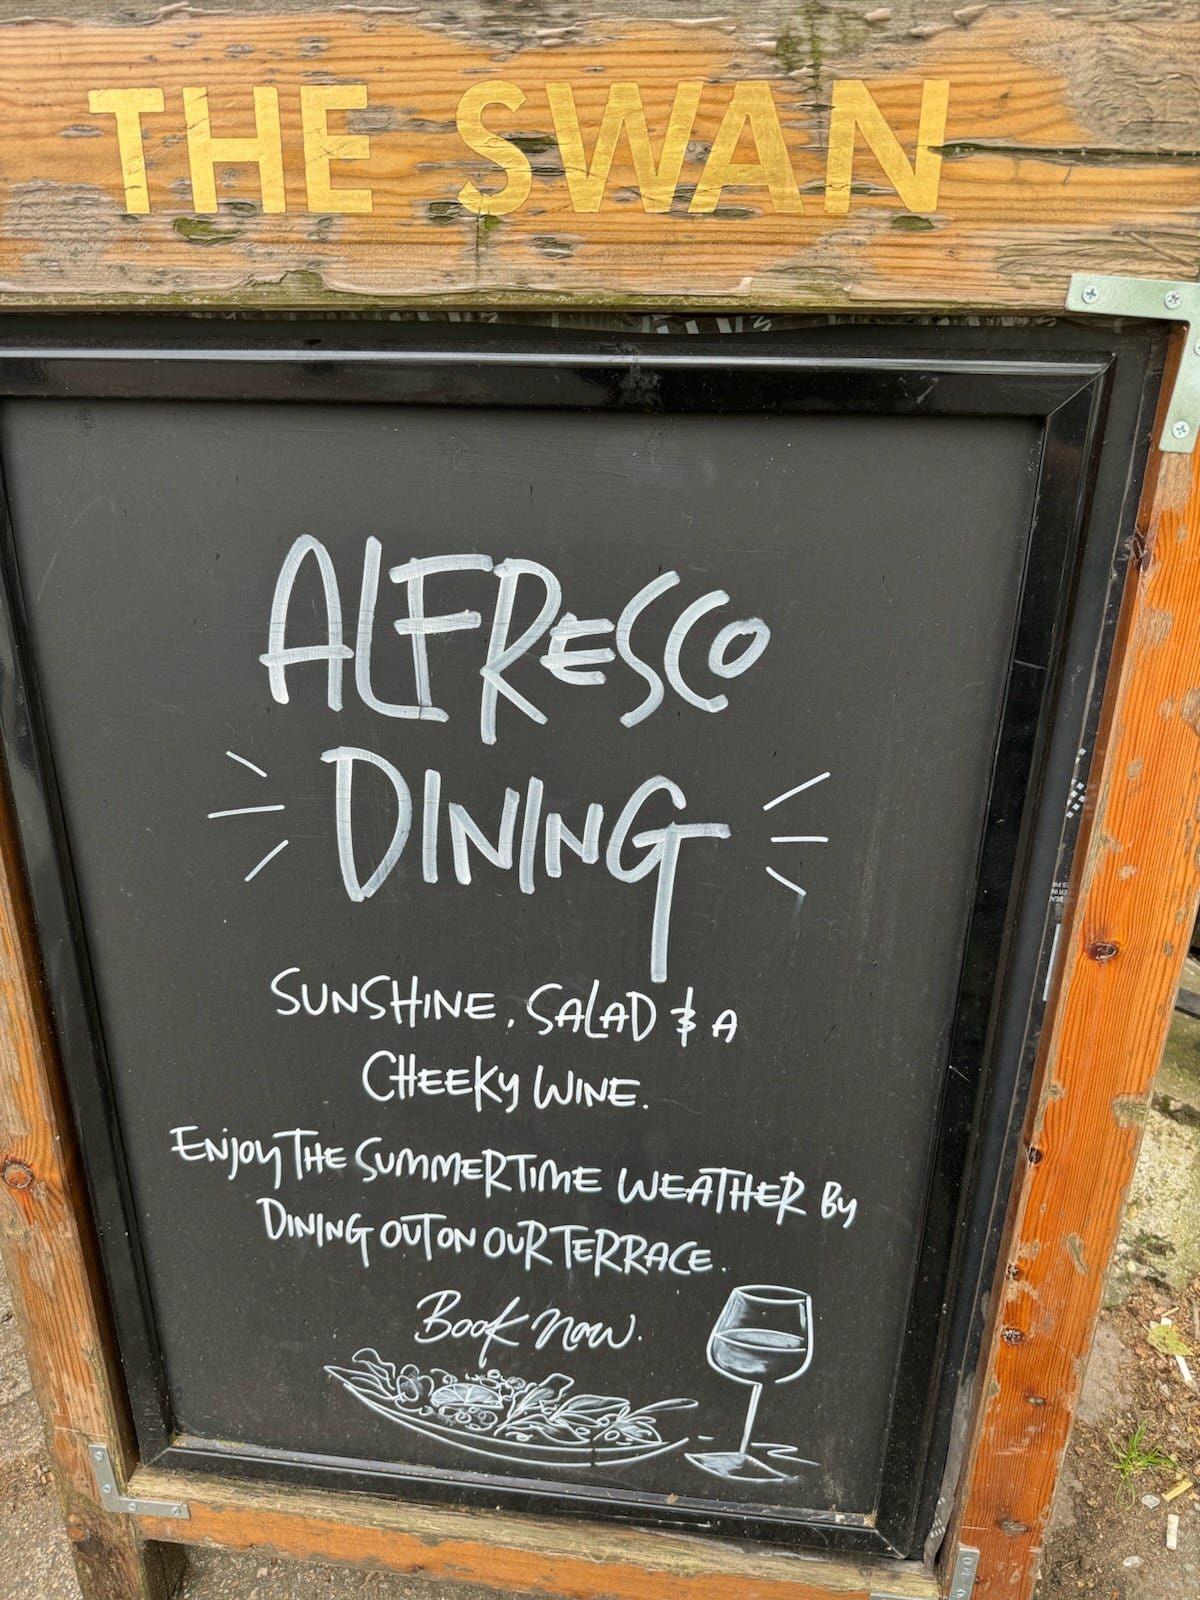 THE SWAN
ALFRESCO
DINING
SUNSHINE, SALAD & A
CHEEKY WINE.
ENJOY THE SUMMERTIME WEATHER BY
DINING OUT ON OUR TERRACE.
Book now.